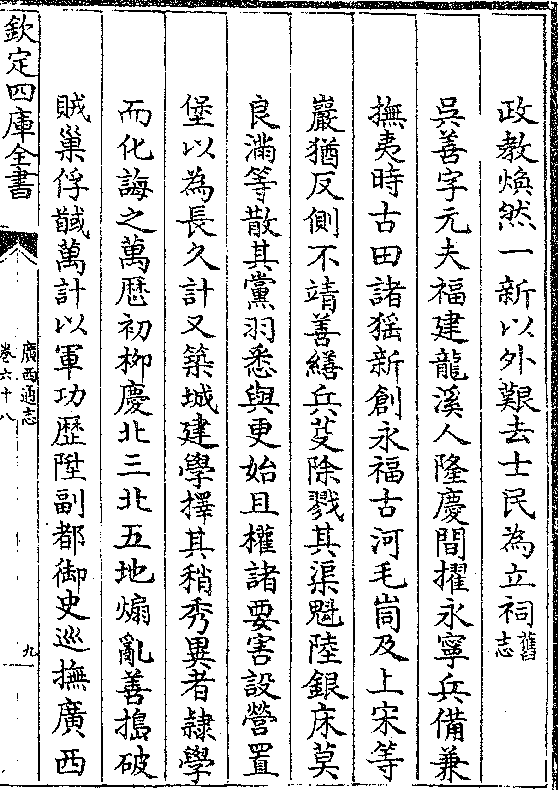 政教煥然一新以外艱去士民為立祠舊志
吳善字元夫福建龍溪人隆慶間擢永寧兵備兼
撫夷時古田諸猺新創永福古河毛峝及上宋等
巖猶反側不靖善繕兵芟除戮其渠魁陸銀床莫
良滿等散其黨羽悉與更始且權諸要害設營置
堡以為長久計又築城建學擇其稍秀異者隸學
而化誨之萬厯初柳慶北三北五地煽亂善搗破
賊巢俘馘萬計以軍功歴陞副都御史巡撫廣西
欽定四庫全書
廣西通志
卷六十八
九